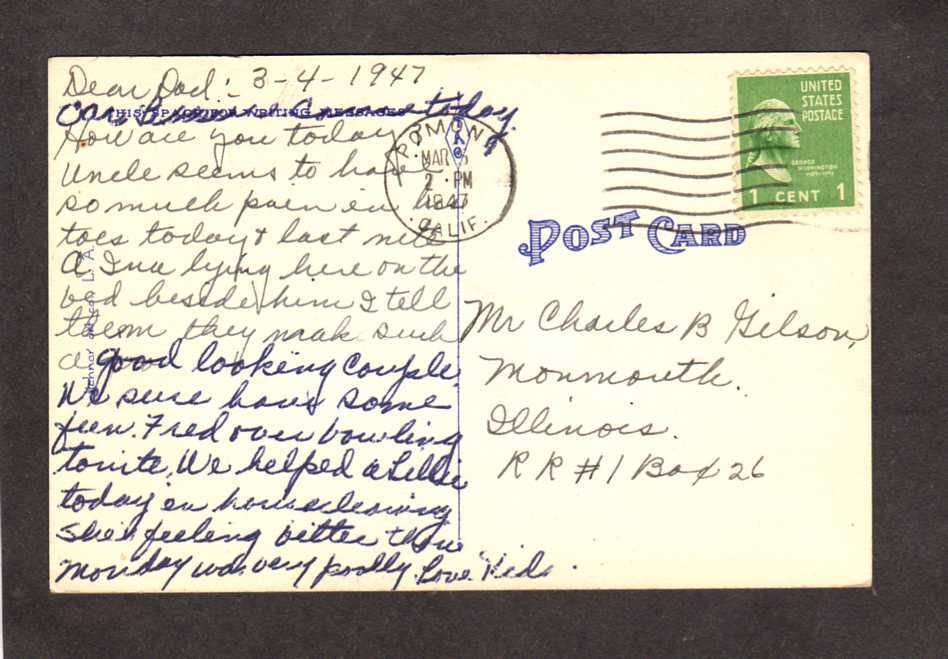 Dear Dad:- 3-4-1947
THIS SPACE FOR WRITING MESSAGES
today.
How are you today
Uncle seems to have
so much pain in his
toes today & last nite
A. Ina lying here on the
bed beside him I tell
them they mak such
a good looking couple.
We sure have some
fun. Fred over bowling
tonite. We helped a Lillie
today in housecleaning
She feeling better than
monday was very poorly. Love Kids.
POMONA
MAR 5
2 PM
1947
CALIF.
UNITED
STATES
POSTAGE
GEORGE
WASHINGTON
1 CENT 1
POST CARD
Mr Charles B Gilson,
Monmouth.
Illinois.
R R #1 Box 26
L. A.